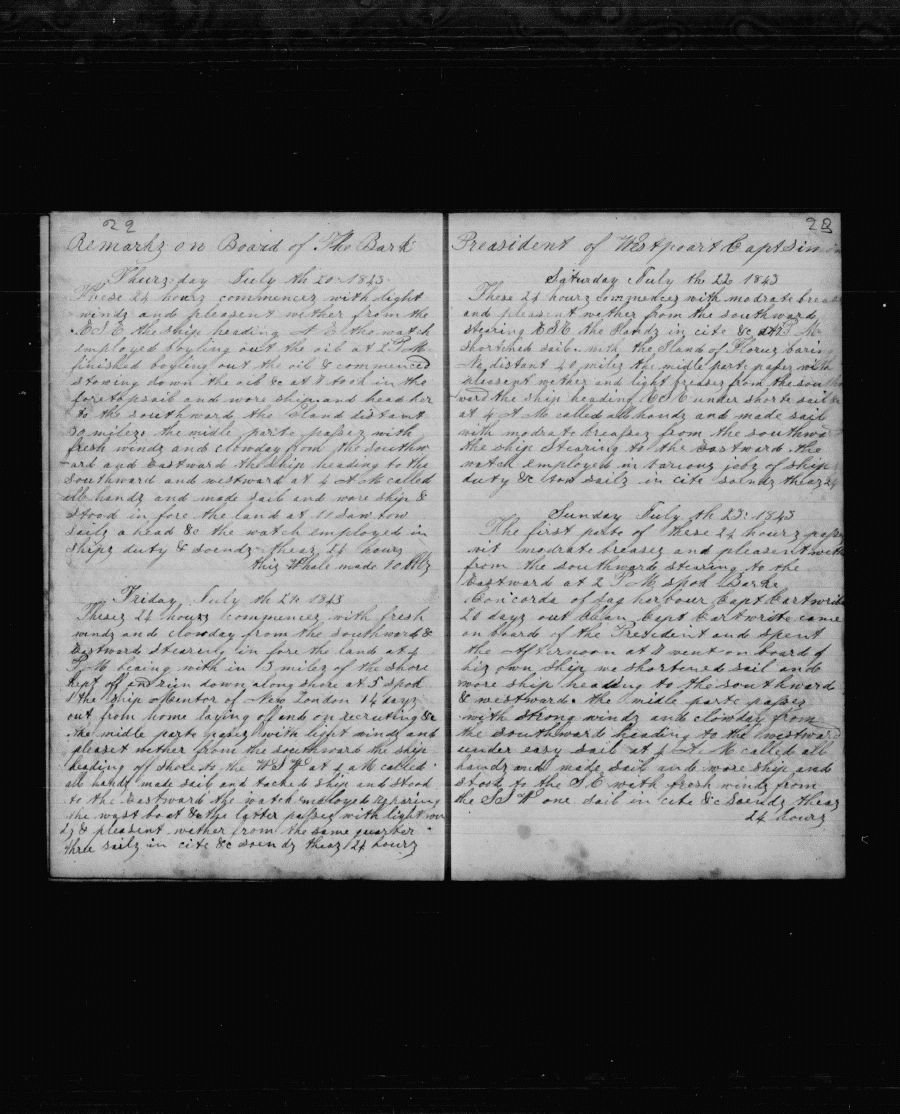 29
Remarks on Board of The Bark
Thursday July th 20 1843
These 24 hours commences with light
winds and pleasent wether from the
ESE the ship heading N E the watch
employed boyling out the oil at 2 P M
finished boyling out the oil & commenced
stowing down the oil & at 8 took in the
foretopsail and wore ship and head her
to the southward the Iland distant
30 miles the midle parte passes with
fresh winds and clowday from the southw
ard and Eastward the ship heading to the
southward and westward at 4 A M called
all hands and made sail and wore ship &
stood in fore the land at 11 saw tow
sails a head &c the watch employed in
ships duty & soends theas 24 hours
this Whale made 10 bbls
Friday July th 21 1843
Theses 24 hours commences with fresh
winds and clowday from the southward &
Eastward stearing in fore the land at 4
P M being with in 3 miles of the shore
kept off and run down along shore at 5 spod
the ship Mentor of New London 14 days
out from home laying off and on recruting &c
the midle parte passes with light winds and
pleaset wether from the southward the ship
heading of shore to the WSW at 4 AM called
all hands made sail and tacked ship and stood
to the Eastward the watch employed reparing
the wast boat & the latter passes with light win
ds & pleasent wether from the same quarter
three sails in cite &c soends theas 24 hours
28
Preasident of Westpoart Capt
Saturday July th 22 1843
These 24 hours commences with modrate breas
and pleasent wether from the southward
stearing ESE the Ilands in cite &c at P M
shortined sail with the Iland of Florus baring
distant 40 miles the midle parte passes with
pleasent wether and light breases from the south
ward the ship heading ESE under shorte sail
at 4 A M called all hands and made sail
with modrate breases from the southwa
the ship stearing to the Eastward the
watch employed in various jobs of ship
duty &c sails in cite soends theas 24
Sunday July th 23 1843
The first parte of These 24 hours passes
wit modrate breases and pleasent weth
from the southward stearing to the
Eastward at 2 P M spod Barke
Concorda of Sag harbour Capt Cartwrite
26 days out Clean Capt Cartwrite came
on board of the President and spent
the Afternoon at 8 went on board of
his own ship we shortened sail and
wore ship heading to the southward
& westward the midle parte passes
with strong winds and clowday from
the southward heading to the westward
under easy sail at 4 A M called all
hands and made sail and wore ship and
stood to the S E with fresh winds from
the SSW one sail in cite &c soends theas
24 hours